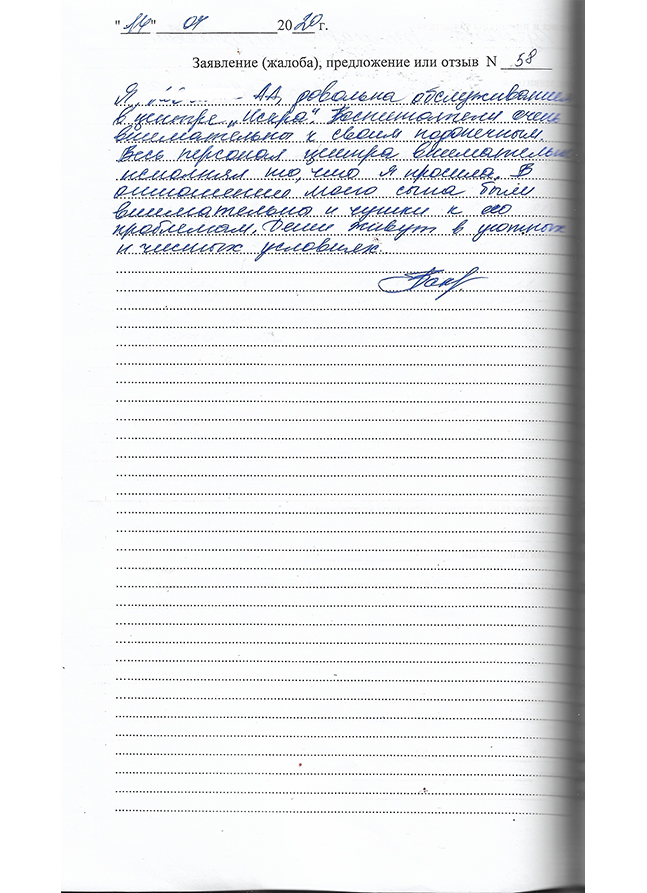 "14" 07 2020 г.
Заявление (жалоба), предложение или отзыв N 58
Я, - АА, довольна обслуживанием
в центре „Искра". Воспитатели очень
внимательны к своим подопечным
Весь персонал центра внимательно
исполнял то, что я просила. В
отношении моего сына были
внимательны и чутки к его
проблемам. Дети живут в уютных
и чистых условиях.